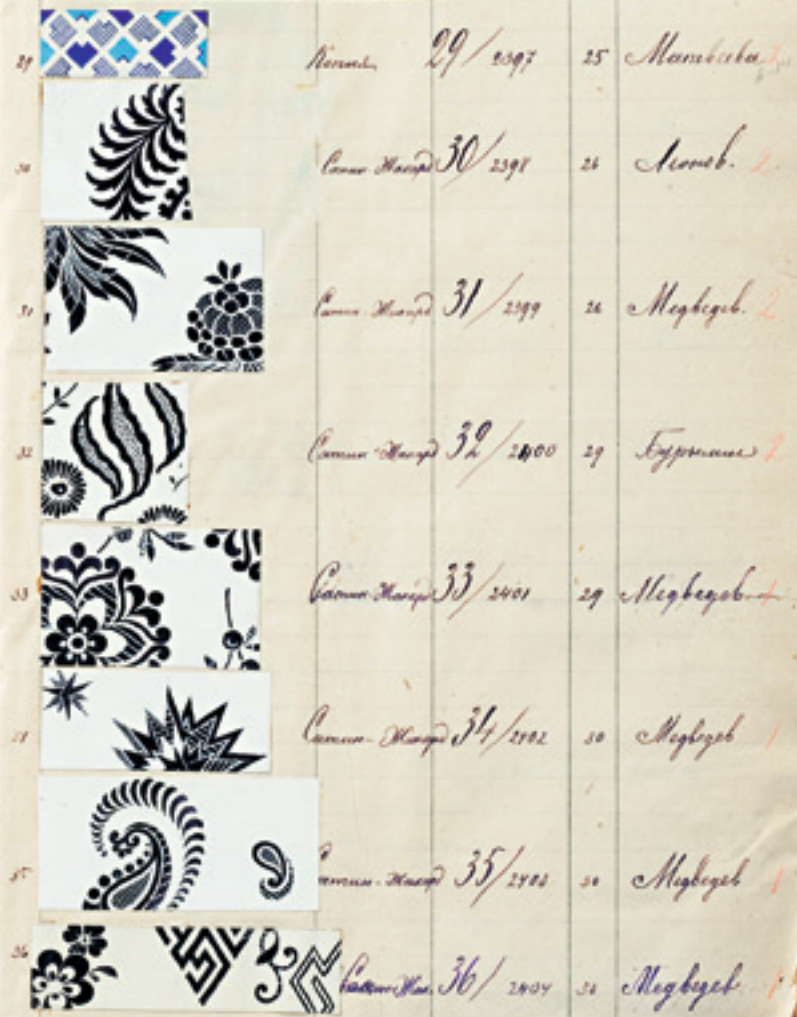 29 29/2397 25 Матвеева
30 Сатин-Жакард 30/2398 26
31 Сатин-Жакард 31/2399 26 Медведев. 2
32 Сатин-Жакард 32/2400 29 Бурмин 2
33 Сатин-Жакард 33/2401 29 Медведев
Сатин-Жакард 34/2402 30 Медведев 1
35 Сатин-Жакард 35/2403 30 Медведев 1
36 Сатин-Жак. 36/2404 Медведев 1